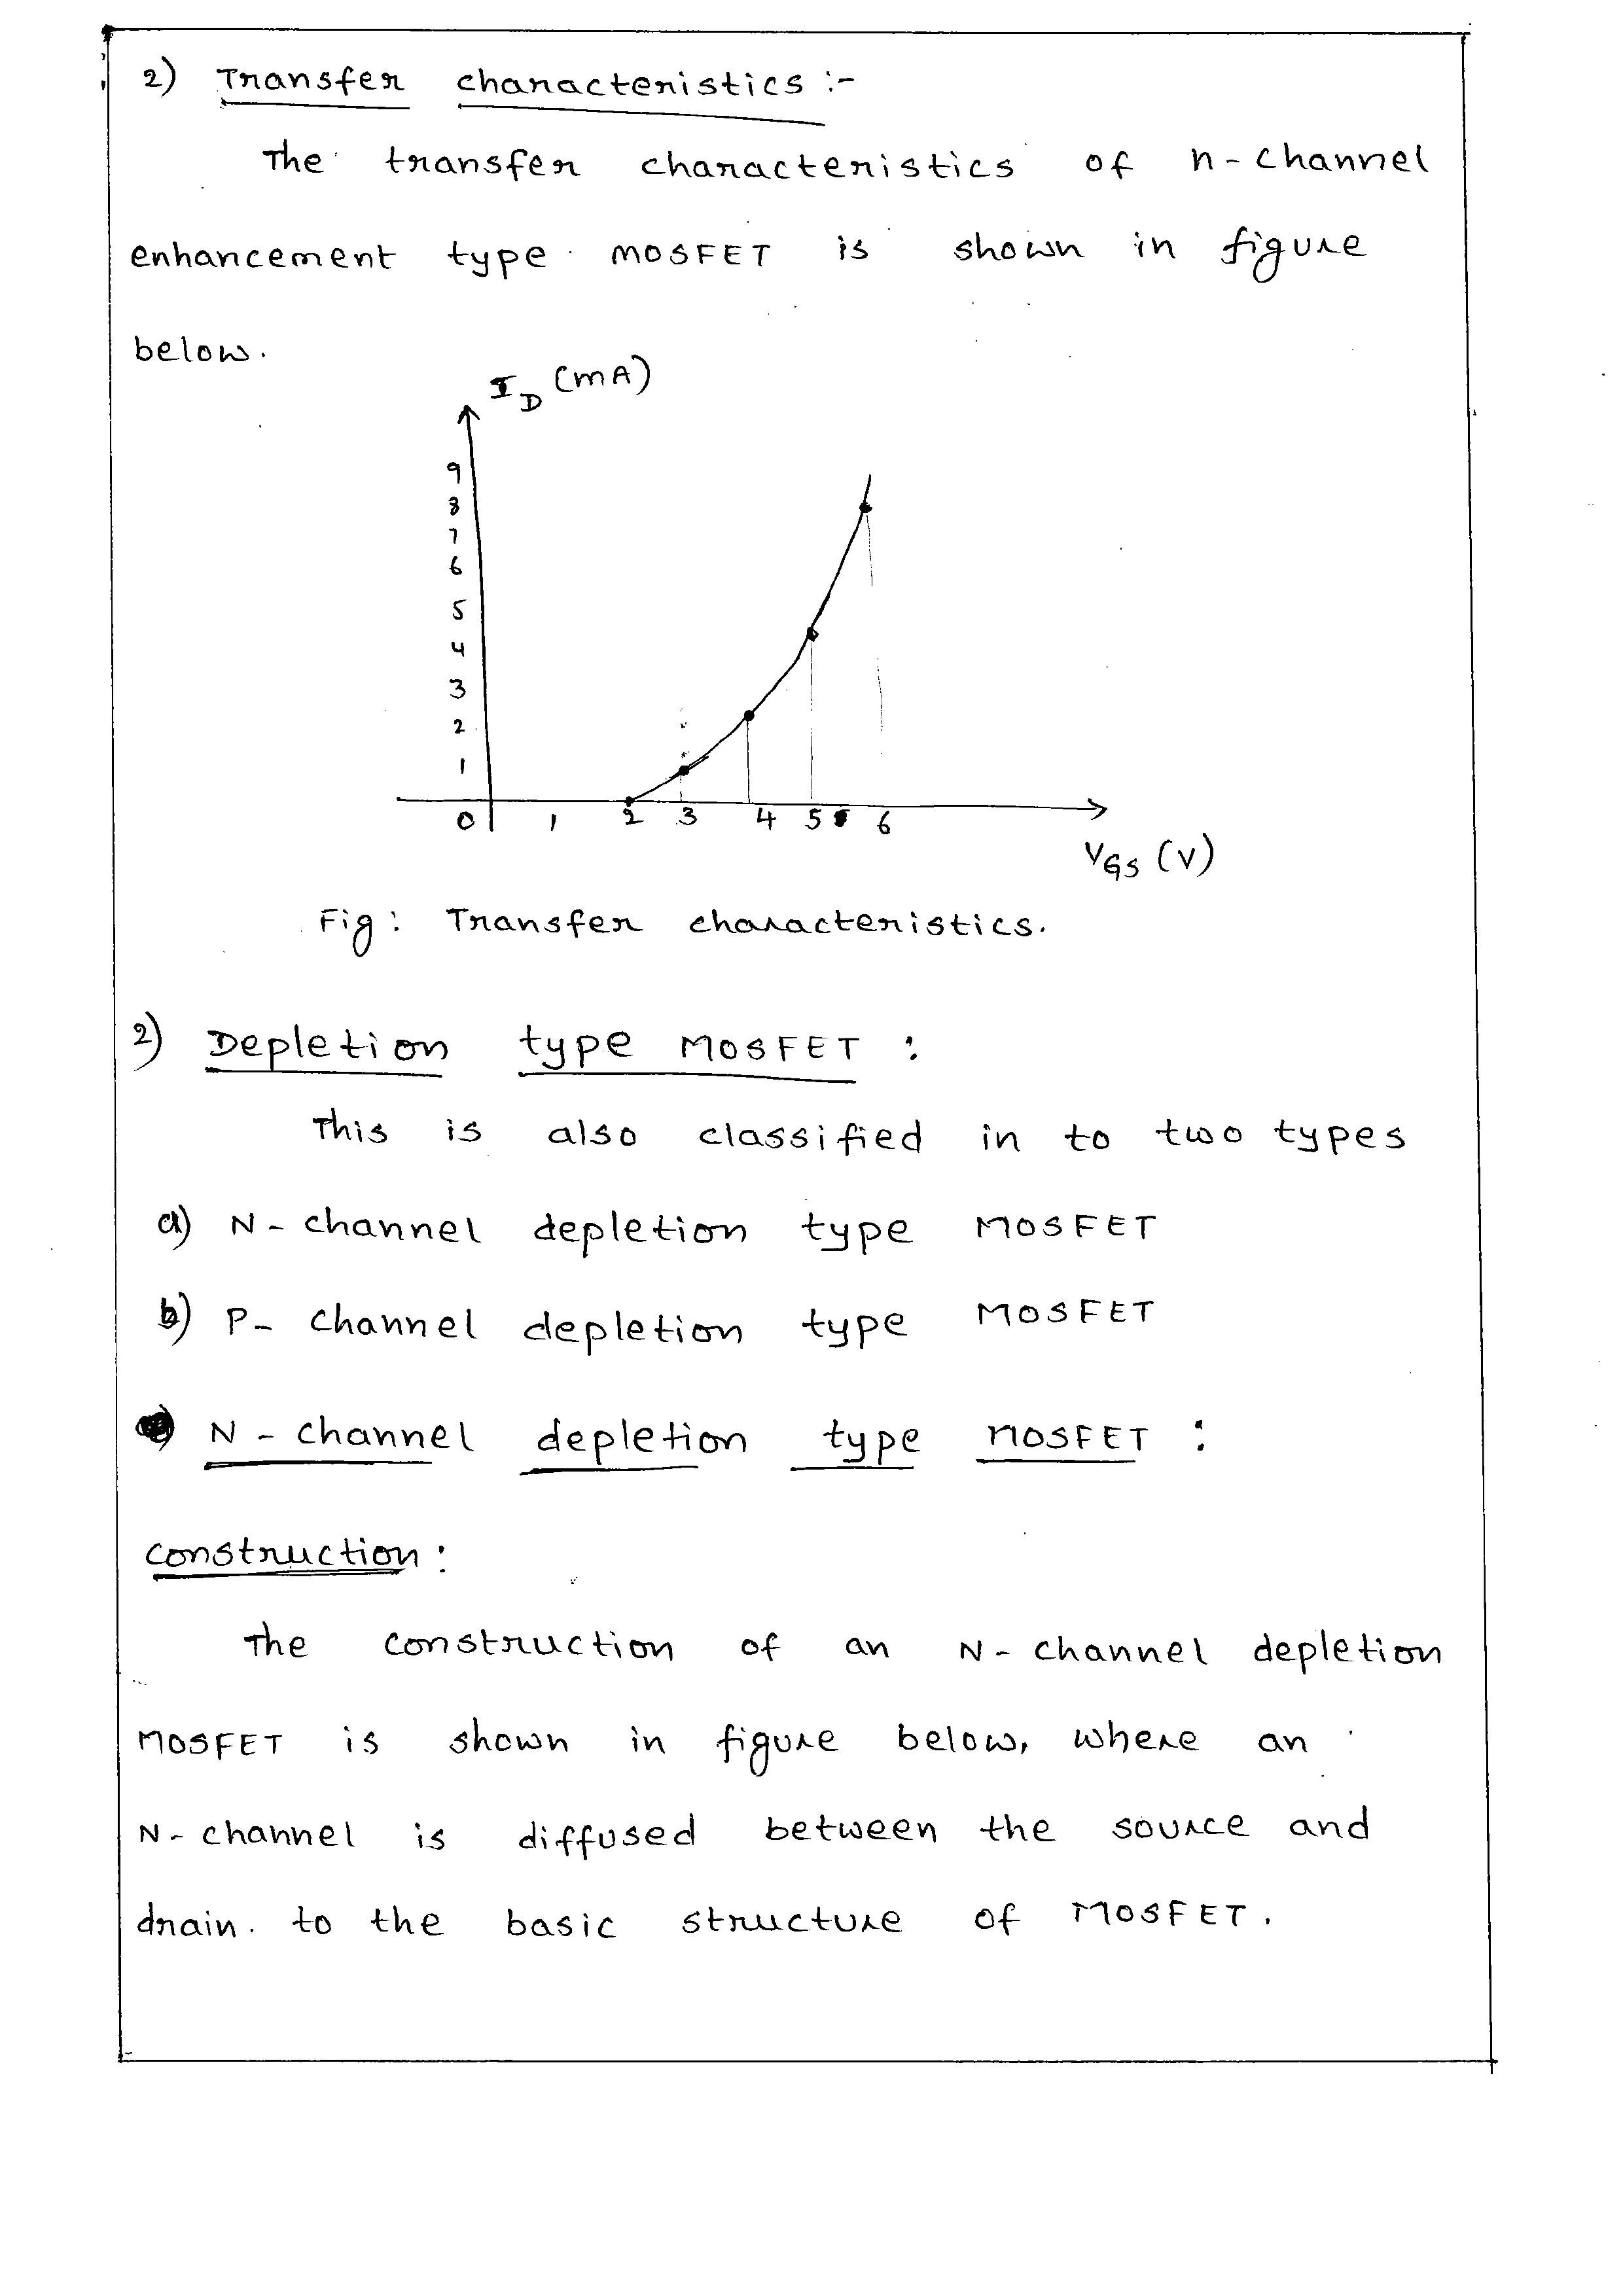 2) Transfer characteristics :-
The transfer characteristics of n-channel
enhancement type MOSFET is shown in figure
below.
ID (mA)
9
8
7
6
5
4
3
2
1
0 1 2 3 4 5 6
VGS (V)
Fig: Transfer characteristics.
2) Depletion type MOSFET :
This is also classified in to two types
a) N-channel depletion type MOSFET
b) P-channel depletion type MOSFET
N-channel depletion type MOSFET :
construction :
The construction of an N-channel depletion
MOSFET is shown in figure below, where an
N-channel is diffused between the source and
drain. to the basic structure of MOSFET.